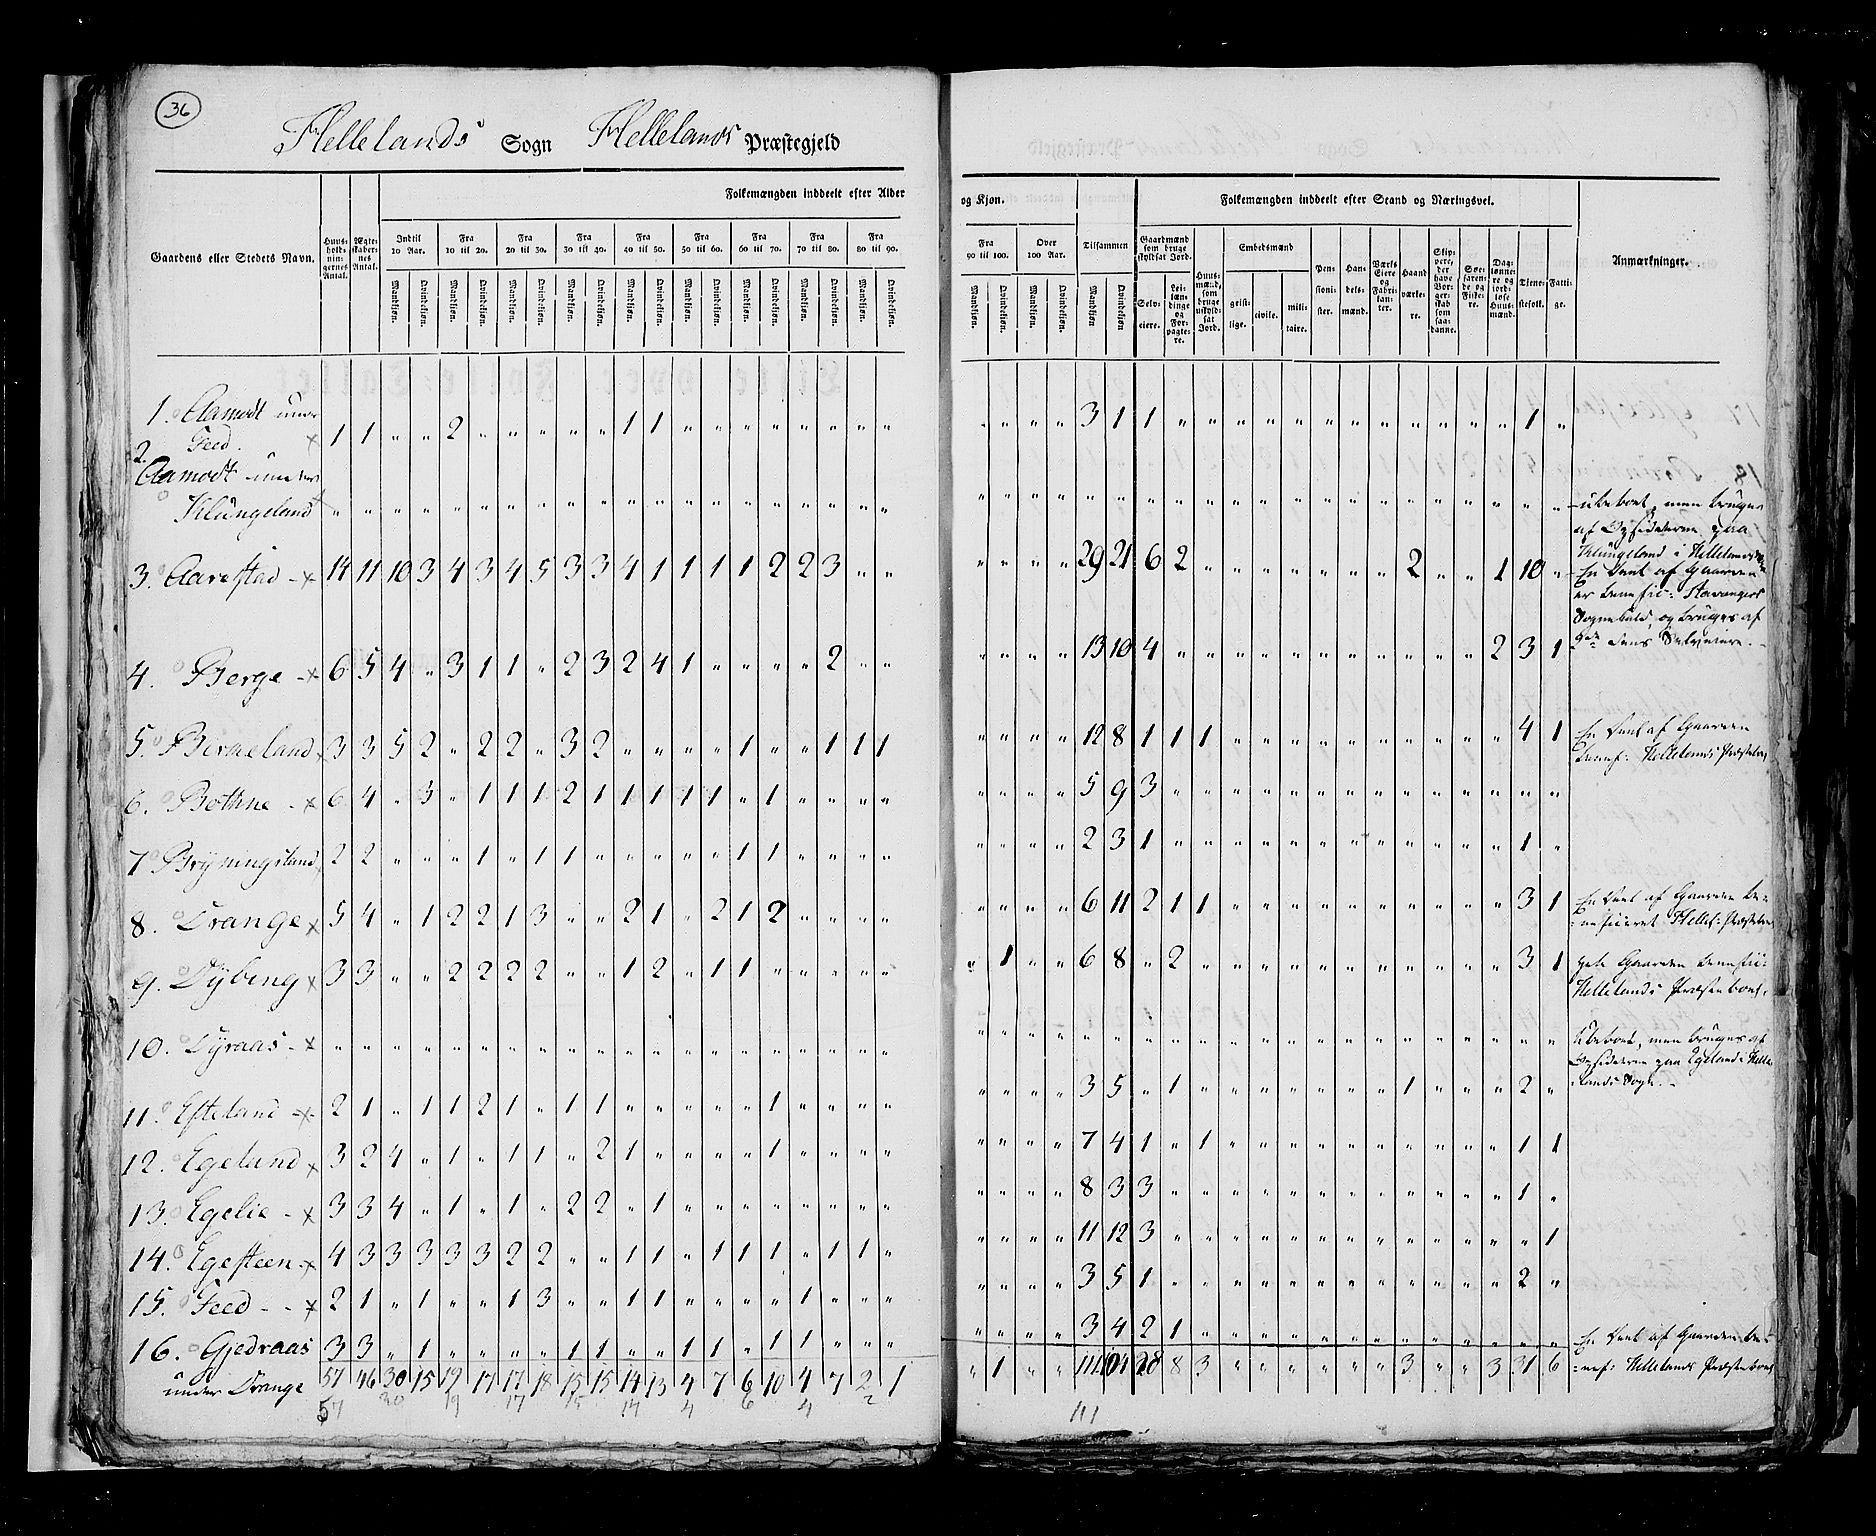 36
Hellelands Sogn Hellelands Præstegjeld
Gaardens eller Stedets Navn.
Huus-holdnin-gernes Antal.
Ægte-skaber-nes Antal.
Folkemængden inddeelt efter Alder og Kjøn.
Indtil 10 Aar. Fra 10 til 20. Fra 20 til 30. Fra 30 til 40. Fra 40 til 50. Fra 50 til 60. Fra 60 til 70. Fra 70 til 80. Fra 80 til 90. Fra 90 til 100. Over 100 Aar. Tilsammen
Mandkiøn. Qvindekiøn.
Folkemængden inddeelt efter Stand og Næringsvei.
Gaardmænd som bruge skyldsat Jord.
Selveiere. Leilændinge og Forpagtere.
Huusmænd, som bruge uskyldsat Jord.
Embedsmænd
geistlige. civile. militaire.
Pensionister. Handelsmænd. Værks Eiere og Fabrikanter. Haandværkere. Slippere, der have Borgerskab som saadanne. Søefarende og Fiskere. Daglønnere og jordløse Huusmænd. Tjenestefolk. Fattige.
Anmærkninger.
1. Aamodt under
Feed. 1 1 " " 2 " " " " " 1 1 " " " " " " " " " " " " 3 1 1 " " " " " " " " " " " " 1 "
2. Aamodt under
Klungeland " " " " " " " " " " " " " " " " " " " " " " " " " " " " " " " " " " " " " " " " "
ubeboet, men bruges
af Opsidderne paa
Klungeland i Hellelands
3. Aarestad 14 11 10 3 4 3 4 5 3 3 4 1 1 1 1 2 2 3 " " " " " " 29 21 6 2 " " " " " " " 2 " " 1 10 "
En Deel af Gaarden
er benefic: Stavangers
og bruges af
dens Selveiere.
4. Berge 6 5 4 " 3 1 1 " 2 3 2 4 1 " " " " 2 " " " " " " 13 10 4 " " " " " " " " " " " 2 3 1
5. Birkeland 3 3 5 2 " 2 2 " 3 2 " " " " 1 " " 1 1 1 " " " " 12 8 1 1 1 " " " " " " " " " " 4 1
En Deel af Gaarden
benef: Hellelands Præstebord
6. Bothne 6 4 " 3 " 1 1 1 2 1 1 1 1 1 " 1 " " " " " " " " 5 9 3 " " " " " " " " " " " " " "
7 Bryningsland 2 2 " " " 1 " 1 1 " " " " " 1 1 " " " " " " " " 2 3 1 " " " " " " " " " " " " 1 "
8. Drange 5 4 " 1 2 2 1 3 " " 2 1 " 2 1 2 " " " " " " " " 6 11 2 1 1 " " " " " " " " " " 3 1
En Deel af Gaarden be-
neficeret Hellel: Præstebord
9. Dybing 3 3 " " 2 2 2 2 " " 1 2 " 1 1 " " " " " " 1 " " 6 8 " 2 " " " " " " " " " " " 3 1
hele Gaarden benefic:
Hellelands Præstebord.
10. Dyraas " " " " " " " " " " " " " " " " " " " " " " " " " " " " " " " " " " " " " " " " "
Ubeboet, men bruges af
Opsidderne paa Egeland i Helle-
lands Sogn.
11. Efteland 2 1 " 1 1 2 1 " 1 1 " " " " " 1 " " " " " " " " 3 5 " 1 " " " " " " " 1 " " " 2 "
12. Egeland 3 2 4 " 1 " 1 1 " 2 1 " " " " 1 " " " " " " " " 7 4 1 " 1 " " " " " " " " " " 1 1
13. Egelie 3 3 4 " 1 " 1 " 2 2 " 1 " " " " " " " " " " " " 8 3 3 " " " " " " " " " " " " 1 "
14. Egesteen 4 3 3 3 3 3 2 2 " " 1 1 " 1 1 1 " 1 1 " " " " " 11 12 3 " " " " " " " " " " " " " 1
15. Feed 2 1 " 1 " " 1 3 " " 1 1 " " " " 1 " " " " " " " 3 5 1 " " " " " " " " " " " " 2 "
16. Gjedraas 3 3 " 1 " " " " 1 1 " " 1 1 " 1 1 " " " " " " " 3 4 2 1 " " " " " " " " " " " " "
under Drange
En Deel af Gaarden be-
nef: Hellelands Præstebord
57 46 30 15 19 17 17 18 15 15 14 13 4 7 6 10 4 7 2 1 " 1 " " 111 104 28 8 3 " " " " " " 3 " " 3 31 6
57 30 19 17 15 14 4 6 4 2 111